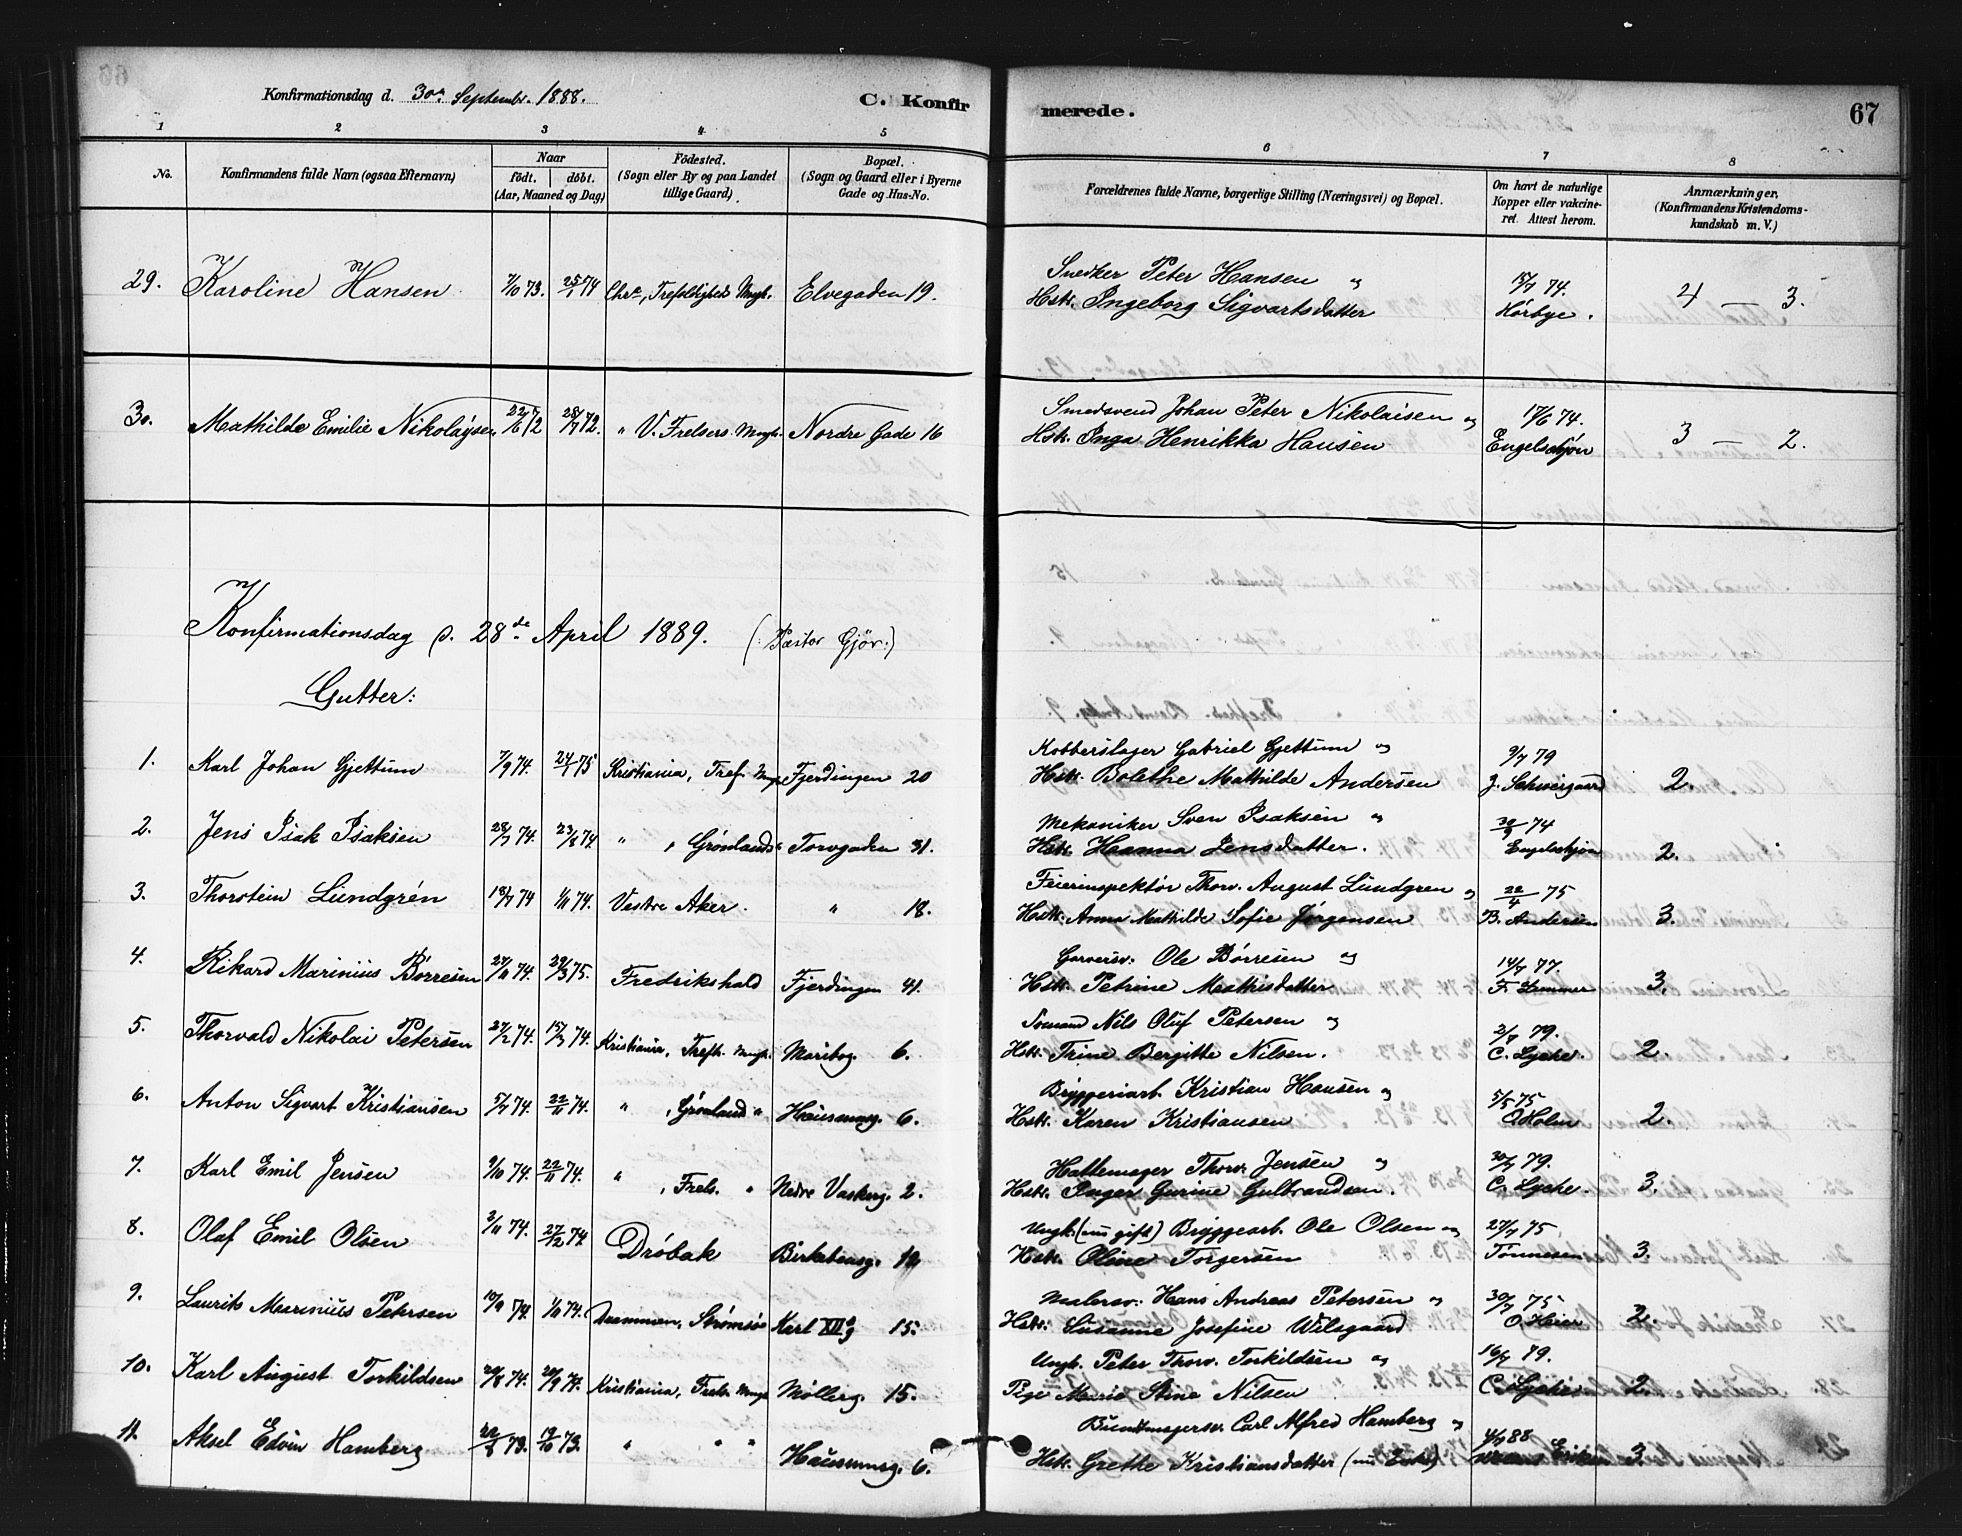 Konfirmationsdag d. 30te Septembr. 1888. C. Konfir merede. 67
1 2 3 4 5 6 7 8
No. Konfirmandens fulde Navn (ogsaa Efternavn) Naar födt. döbt. (Aar, Maaned og Dag) Födested. (Sogn eller By og paa Landet tillige Gaard) Bopæl. (Sogn og Gaard eller i Byerne Gade og Hus-No. Forældrenes fulde Navne, borgerlige Stilling (Næringsvei) og Bopæl. Om havt de naturlige Kopper eller vakcineret. Attest herom. Anmærkninger. (Konfirmandens Kristendomskundskab m. V.)
29. Karoline Hansen 7/10 73. 25/1 74 Chra, Trefoldigheds Mngh. Elvegaden 19. Snedker Peter Hansen og 15/7 74. 4 — 3.
Hstr. Ingeborg Sigvartsdatter Hørbye.
30. Mathilde Emilie Nikolaysen 22/6 72 28/7 72. " V. Frelsers Mngh. Nordre Gade 16 Smedsvend Johan Peter Nikolaisen og 17/6 74. 3 — 2.
Hstr. Inga Henrikka Hansen Engelschjøn
Konfirmationsdag d. 28de April 1889. (: Pastor Gjör :)
Gutter:
1. Karl Johan Gjettum 7/9 74. 24/1 75 Kristiania, Tref. Mngh. Fjerdingen 20 Kobberslager Gabriel Gjettum og 9/7 79
Hstr. Bolethe Mathilde Andersen J. Schweigaard 2.
2. Jens Isak Isaksen 28/7 74. 23/8 74 " , Grønlands " Torvgaden 31. Mekaniker Sven Isaksen og 30/9 74
Hstr. Hanna Jensdatter. Engelschjøn 2.
3. Thorstein Lundgrén 18/7 74 1/11 74. Vestre Aker. " 18. Feierinspektör Thorv. August Lundgren og 22/4 75
Hstr. Anna Mathilde Sofie Jørgensen B. Andersen 3.
4. Rikard Marinius Børresen 27/11 74. 29/3 75. Fredrikshald Fjerdingen 41. Garversv. Ole Børresen og 14/7 77.
Hstr. Petrine Mathisdatter F. Lammer 3.
5. Thorvald Nikolai Petersen 27/2 74. 15/3 74. Kristiania, Trefh. Mngh. Maribog. 6. Sømand Nils Oluf Petersen og 2/7 79.
Hstr. Trine Bergitte Nilsen. C. Lyche. 2.
6. Anton Sigvart Kristiansen 5/7 74. 22/11 74. " , Grønland " Hausmnsg. 6. Bryggeriarb. Kristian Hansen og 5/5 75
Hstr. Karen Kristiansen O Holm 2.
7. Karl Emil Jensen 9/10 74. 22/11 74. " , Frels. " Nedre Vaskerg. 2. Hattemager Thorv. Jensen og 30/7 79.
Hstr. Inger Gurine Gulbrandsen. C. Lyche. 3.
8. Olaf Emil Olsen 2/11 74. 27/12 74 Drøbak Birkebeinerg. Ungk. (nu gift) Bryggearb. Ole Olsen og 27/7 75
Hstr. Oline Torgersen Tønnesen 3.
9. Laurits Marinius Petersen 10/9 74. 1/11 74. Drammen, Strømsø Karl XIIg 15. Malersv. Hans Andreas Petersen og 30/7 75
Hstr. Susanne Josefine Wilsgaard O Heier 2.
10. Karl August Torkildsen 20/8 74. 20/9 74. Kristiania, Frels. Mngh. Møllerg. 15. Ungk. Peter Thorv. Torkildsen og 16/7 79.
Pige Marie Stina Nilsen C. Lyche 2.
11. Aksel Edvin Hamberg 22/8 73. 19/10 73. " " " Hausmnsg. 6. Buntmagersv. Carl Alfred Hamberg og 4/7 88
Hstr. Grethe Kristiansdatter (nu Enke) 3.